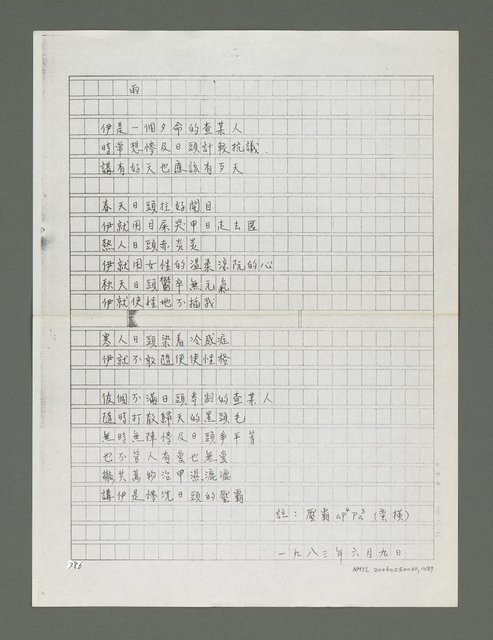 雨
伊是一個歹命的查某人
時常想傍及日頭計較抗議
講有好天也應該有歹天
春天日頭往好開目
伊就用目屎哭甲日走去匿
熱人日頭赤炎炎
伊就用女性的溫柔涼阮的心
秋天日頭鬱卒無元氣
伊就使性地不插我
寒人日頭染着冷感症
伊就不敢隨便使性格
彼個不滿日頭專制的查某人
隨時打散歸天的黑頭毛
無時無陣傍及日頭爭平等
也不管人有愛也無愛
攏共萬物沿甲濕漉漉
講伊是傍沈日頭的壓霸
註：壓霸 ap⁴ pa³（蠻橫）
一九八三年六月九日
386
NMTL 20060250020,